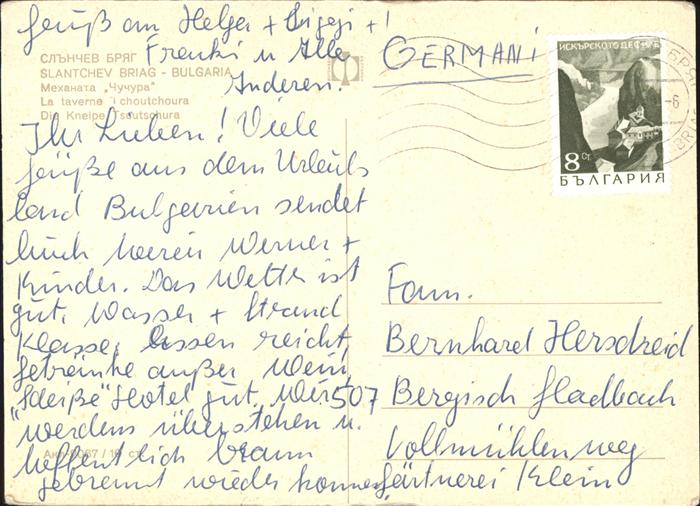 Grüß an Helga + Gigi + !
Frenki u Alle
Anderen.
GERMANI
СЛЪНЧЕВ БРЯГ
SLANTCHEV BRIAG - BULGARIA
Механата „Чучура"
La taverne Tchoutchoura
Die Kneipe Tsutschura
ИСКЪРСКОТО ДЕФИЛЕ
8 Ст.
БЪЛГАРИЯ
Ihr Lieben! Viele
Grüße aus dem Urlaubs
land Bulgarien sendet
Euch Werner +
Kinder. Das Wetter ist
gut, Wasser + Strand
Klasse, Essen reicht,
Getränke außer Wein
"Scheiße" Hotel gut. Wir
werdens überstehen u.
hoffentlich braun
gebrannt wieder kommen
Fam.
Bernhard
507 Bergisch Gladbach
Vollmühlenweg
Gärtnerei Klein